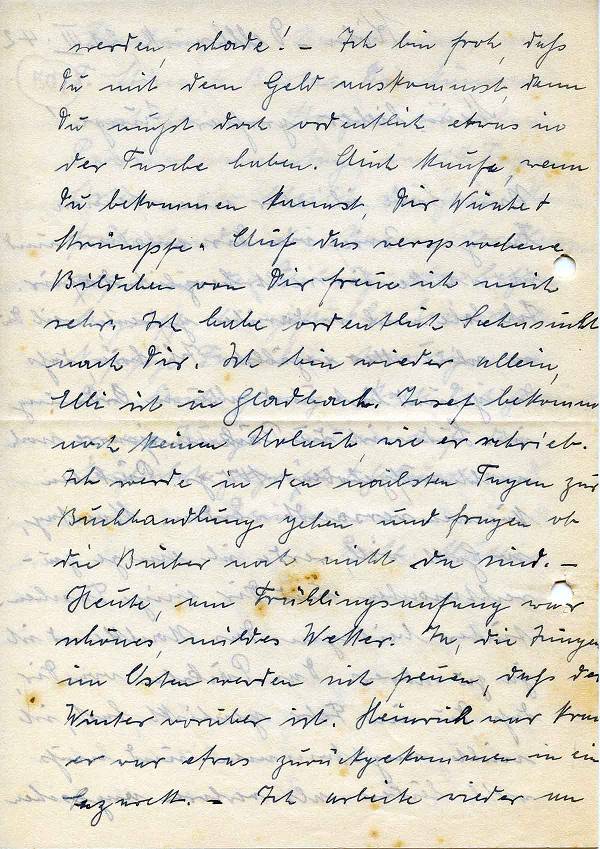 werden, schade! – Ich bin froh, daß
Du mit dem Geld auskommst, denn
Du mußt doch ordentlich etwas in
der Tasche haben. Auch kaufe, wenn
Du bekommen kannst, Dir
Strümpfe. Auf das versprochene
Bildchen von Dir freue ich mich
sehr. Ich habe ordentlich Sehnsucht
nach Dir. Ich bin wieder allein,
Elli ist in Gladbach. Josef bekomm
noch keinen Urlaub, wie er schrieb.
Ich werde in den nächsten Tagen zur
Buchhandlung gehen und fragen ob
die Bücher noch nicht da sind. –
Heute, am Frühlingsanfang war
schönes, mildes Wetter. Ja, die Jungen
im Osten werden sich freuen, daß der
Winter vorüber ist. Heinrich war kran
er war etwas zurückgekommen in ein
Lazarett. – Ich arbeite wieder an